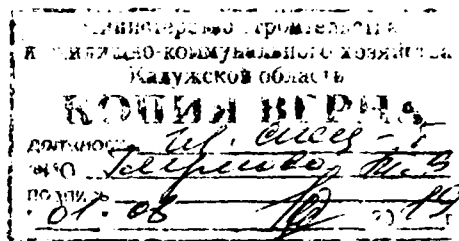 министерство строительства
и жилищно-коммунального хозяйства
Калужской области
КОПИЯ ВЕРНА
должность гл. спец-т
ФИО
подпись
01. 08 2019 г